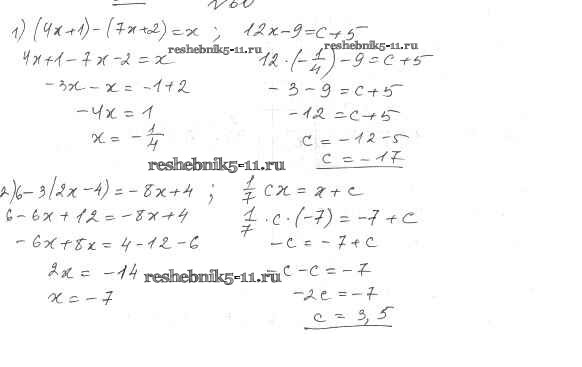 №60
1) (4x+1)-(7x+2)=x ; 12x-9=c+5
reshebnik5-11.ru reshebnik5-11.ru
4x+1-7x-2=x 12·(-1/4)-9=c+5
-3x-x=-1+2 -3-9=c+5
-4x=1 -12=c+5
x=-1/4 c=-12-5
c=-17
reshebnik5-11.ru
2) 6-3(2x-4)=-8x+4 ; 1/7 cx=x+c
6-6x+12=-8x+4 1/7·c·(-7)=-7+c
-6x+8x=4-12-6 -c=-7+c
2x=-14 reshebnik5-11.ru -c-c=-7
x=-7 -2c=-7
c=3,5